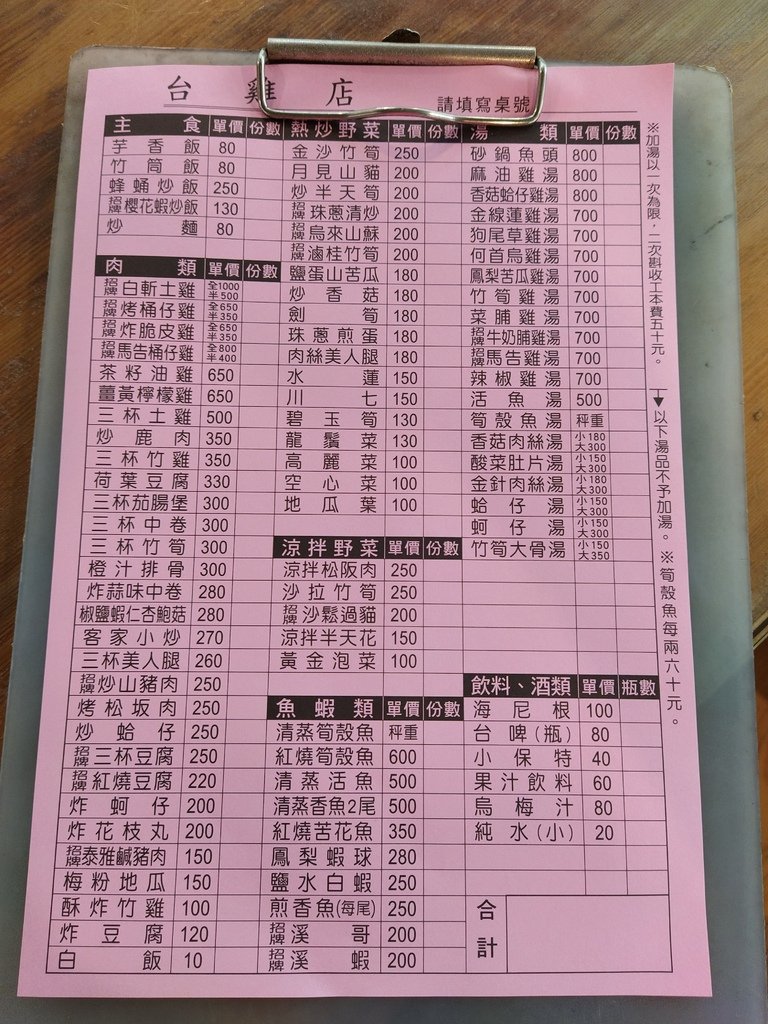 台雞店
請填寫桌號
主食 單價 份數
芋香飯 80
竹筒飯 80
蜂蛹炒飯 250
招牌櫻花蝦炒飯 130
炒麵 80
肉類 單價 份數
招牌白斬土雞 全1000 半500
招牌烤桶仔雞 全650 半350
招牌炸脆皮雞 全650 半350
招牌馬告桶仔雞 全800 半400
茶籽油雞 650
薑黃檸檬雞 650
三杯土雞 500
炒鹿肉 350
三杯竹雞 350
荷葉豆腐 330
三杯茄腸堡 300
三杯中卷 300
三杯竹筍 300
橙汁排骨 300
炸蒜味中卷 280
椒鹽蝦仁杏鮑菇 280
客家小炒 270
三杯美人腿 260
招牌炒山豬肉 250
烤松坂肉 250
炒蛤仔 250
招牌三杯豆腐 250
招牌紅燒豆腐 220
炸蚵仔 200
炸花枝丸 200
招牌泰雅鹹豬肉 150
梅粉地瓜 150
酥炸竹雞 100
炸豆腐 120
白飯 10
熱炒野菜 單價 份數
金沙竹筍 250
月見山貓 200
炒半天筍 200
招牌珠蔥清炒 200
招牌烏來山蘇 200
招牌滷桂竹筍 200
鹽蛋山苦瓜 180
炒香菇 180
劍筍 180
珠蔥煎蛋 180
肉絲美人腿 180
水蓮 150
川七 150
碧玉筍 130
龍鬚菜 130
高麗菜 100
空心菜 100
地瓜葉 100
涼拌野菜 單價 份數
涼拌松阪肉 250
沙拉竹筍 250
招牌沙鬆過貓 200
涼拌半天花 150
黃金泡菜 100
魚蝦類 單價 份數
清蒸筍殼魚 秤重
紅燒筍殼魚 600
清蒸活魚 500
清蒸香魚2尾 500
紅燒苦花魚 350
鳳梨蝦球 280
鹽水白蝦 250
煎香魚(每尾) 250
招牌溪哥 200
招牌溪蝦 200
湯類 單價 份數
砂鍋魚頭 800
麻油雞湯 800
香菇蛤仔雞湯 800
金線蓮雞湯 700
狗尾草雞湯 700
何首烏雞湯 700
鳳梨苦瓜雞湯 700
竹筍雞湯 700
菜脯雞湯 700
招牌牛奶脯雞湯 700
招牌馬告雞湯 700
辣椒雞湯 700
活魚湯 500
筍殼魚湯 秤重
香菇肉絲湯 小180 大300
酸菜肚片湯 小150 大300
金針肉絲湯 小180 大300
蛤仔湯 小150 大300
蚵仔湯 小150 大300
竹筍大骨湯 小150 大350
飲料、酒類 單價 瓶數
海尼根 100
台啤(瓶) 80
小保特 40
果汁飲料 60
烏梅汁 80
純水(小) 20
合計
※加湯以一次為限，二次斟收工本費五十元。
↓以下湯品不予加湯。※筍殼魚每兩六十元。